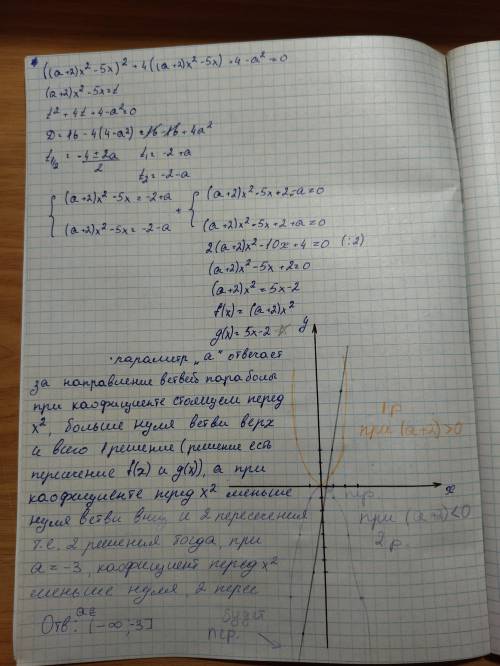 ((a+2)x² - 5x)² + 4((a+2)x² - 5x) + 4 - a² = 0
(a+2)x² - 5x = t
t² + 4t + 4 - a² = 0
D = 16 - 4(4 - a²) = 16 - 16 + 4a²
t₁/₂ = (-4 ± 2a)/2 t₁ = -2 + a
t₂ = -2 - a
{ (a+2)x² - 5x = -2 + a + { (a+2)x² - 5x + 2 - a = 0
(a+2)x² - 5x = -2 - a (a+2)x² - 5x + 2 + a = 0
2(a+2)x² - 10x + 4 = 0 (:2)
(a+2)x² - 5x + 2 = 0
(a+2)x² = 5x - 2
f(x) = (a+2)x²
g(x) = 5x - 2
y
· параметр „а" отвечает
за направление ветвей параболы
при каофициенте стоящем перед
x², больше нуля ветви верх
и всего 1 решение (решение есть
пересечение f(x) и g(x)), а при
каофициенте перед x² меньше
нуля ветви вниз и 2 пересечения
т.е. 2 решения тогда, при
a = -3, каофициент перед x²
меньше нуля, 2 перес
Отв: a∈ [-∞; -3]
1 р.
при (a+2)>0
пер.
x
при (a+2)<0
2 р.
будет
пер.